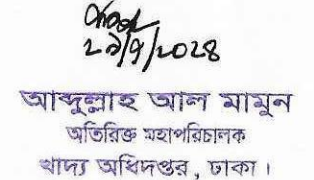 ২৯/৭/২০২৪
আব্দুল্লাহ আল মামুন
অতিরিক্ত মহাপরিচালক
খাদ্য অধিদপ্তর, ঢাকা।